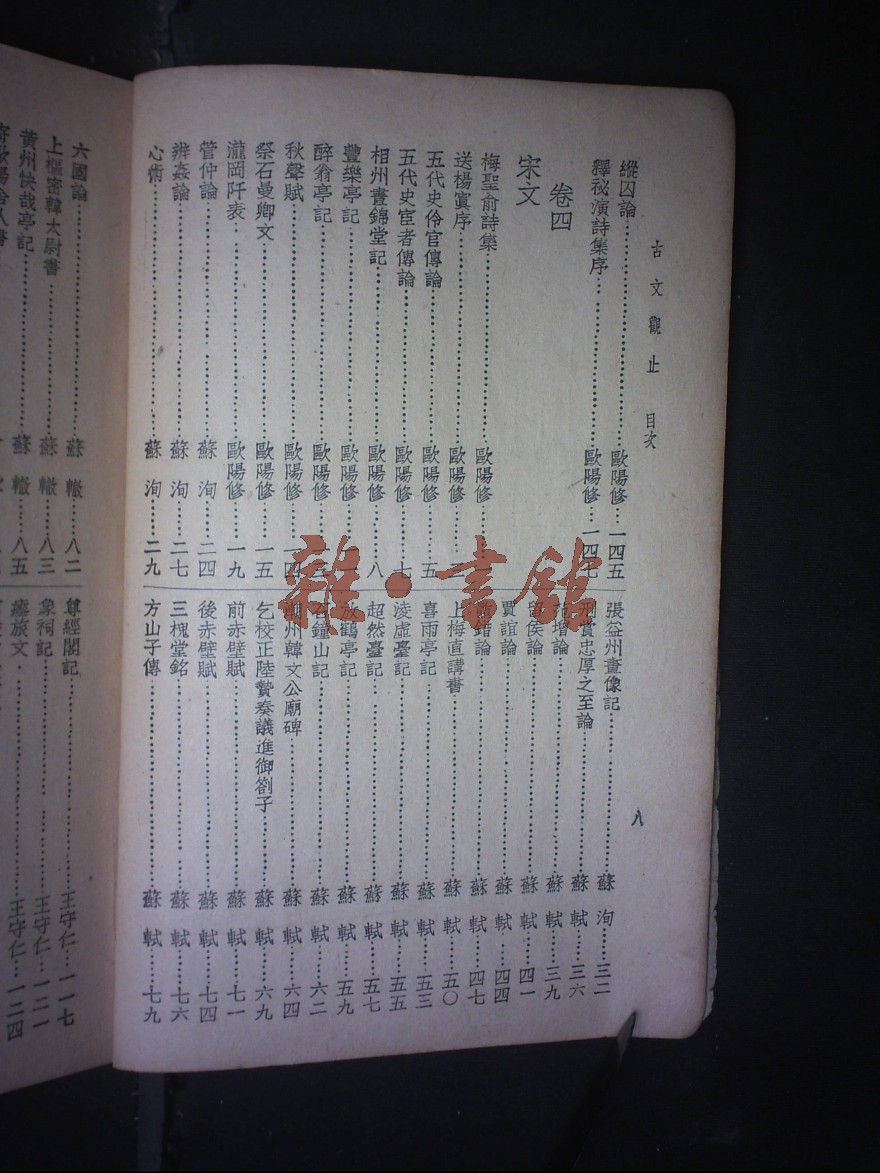 古文觀止　目次
八
縱囚論……歐陽修…一四五
釋祕演詩集序……歐陽修…一四七
卷四
宋文
梅聖俞詩集……歐陽修
送楊寘序……歐陽修…三
五代史伶官傳論……歐陽修…五
五代史宦者傳論……歐陽修…七
相州晝錦堂記……歐陽修…八
豐樂亭記……歐陽修
醉翁亭記……歐陽修
秋聲賦……歐陽修…一四
祭石曼卿文……歐陽修…一五
瀧岡阡表……歐陽修…一九
管仲論……蘇洵…二四
辨姦論……蘇洵…二七
心術……蘇洵…二九
張益州畫像記……蘇洵…三二
刑賞忠厚之至論……蘇軾…三六
范增論……蘇軾…三九
留侯論……蘇軾…四一
賈誼論……蘇軾…四四
鼂錯論……蘇軾…四七
上梅直講書……蘇軾…五〇
喜雨亭記……蘇軾…五三
淩虛臺記……蘇軾…五五
超然臺記……蘇軾…五七
放鶴亭記……蘇軾…五九
石鐘山記……蘇軾…六二
潮州韓文公廟碑……蘇軾…六四
乞校正陸贄奏議進御劄子……蘇軾…六九
前赤壁賦……蘇軾…七一
後赤壁賦……蘇軾…七四
三槐堂銘……蘇軾…七六
方山子傳……蘇軾…七九
六國論……蘇轍…八二
上樞密韓太尉書……蘇轍…八三
黃州快哉亭記……蘇轍…八五
尊經閣記……王守仁…一一七
象祠記……王守仁…一二一
瘞旅文……王守仁…一二四
雜·書館